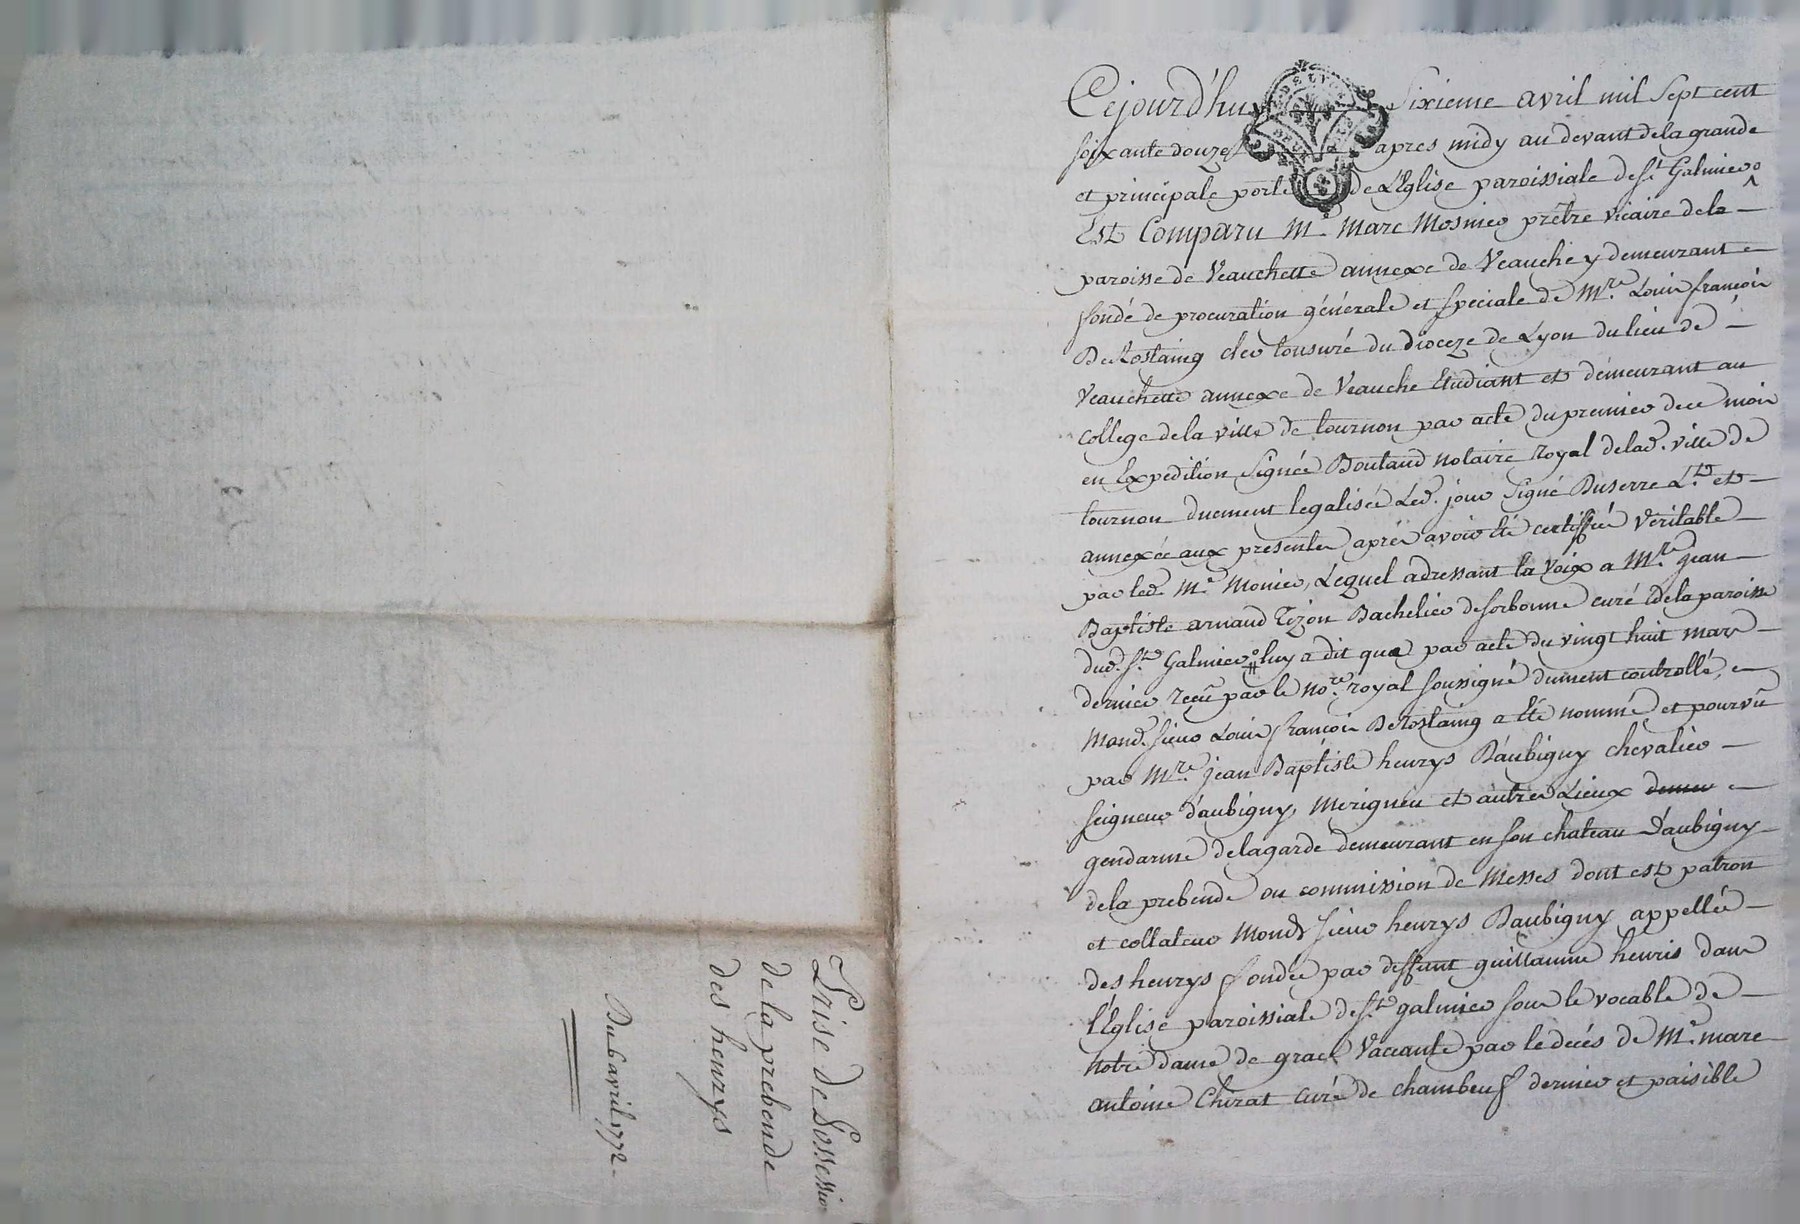 Prise de Possession
de la prebende
des henrys
Du 6 avril 1772
Cejourd'huy Sixieme avril mil Sept cent
soixante douze apres midy au devant de la grande
et principale porte de L'Eglise paroissiale de st. Galmier
Est Comparu Mr. Marc Mosnier prêtre vicaire de la
paroisse de Veauchette annexe de Veauche y demeurant
fondé de procuration générale et speciale de Mre. Louis françois
De Rostaing clerc tonsuré du Dioceze de Lyon du lieu de
Veauchette annexe de Veauche Etudiant et demeurant au
college de la ville de tournon par acte du premier de ce mois
en Expedition Signée Boutaud notaire royal de lad. ville de
tournon duement legalisée Led. jour Signé Duserre Lt. et
annexée aux presentes après avoir été certiffié véritable
par led. Mr. Monier, Lequel adressant la voix a Mre. jean
Baptiste arnaud Tizon Bachelier de sorbonne curé de la paroisse
dud. st. Galmier luy a dit que par acte du vingt huit mars
dernier reçu par le nore. royal soussigné dument controllé,
mond. sieur Louis françois De Rostaing a été nommé et pourvû
par Mre. jean Baptiste henrys D'aubigny chevalier
seigneur d'aubigny, Merigneu et autres Lieux
gendarme de la garde demeurant en son chateau D'aubigny
de la prebende ou commission de Messes dont est patron
et collateur mond. sieur henrys Daubigny appellée
des henrys fondée par deffunt guillaume henris dans
l'Eglise paroissiale de st. galmier sous le vocable de
notre dame de grace Vaccante par le decés de Mr. marc
antoine Chirat curé de chambeuf dernier et paisible